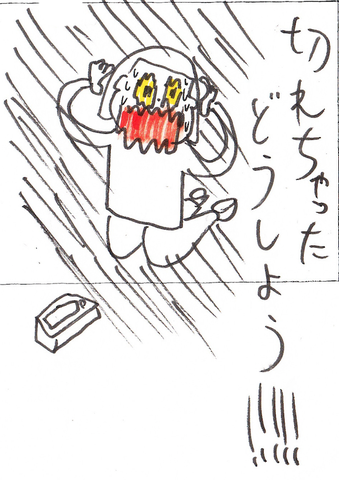 切れちゃった
どうしよう!!!!!